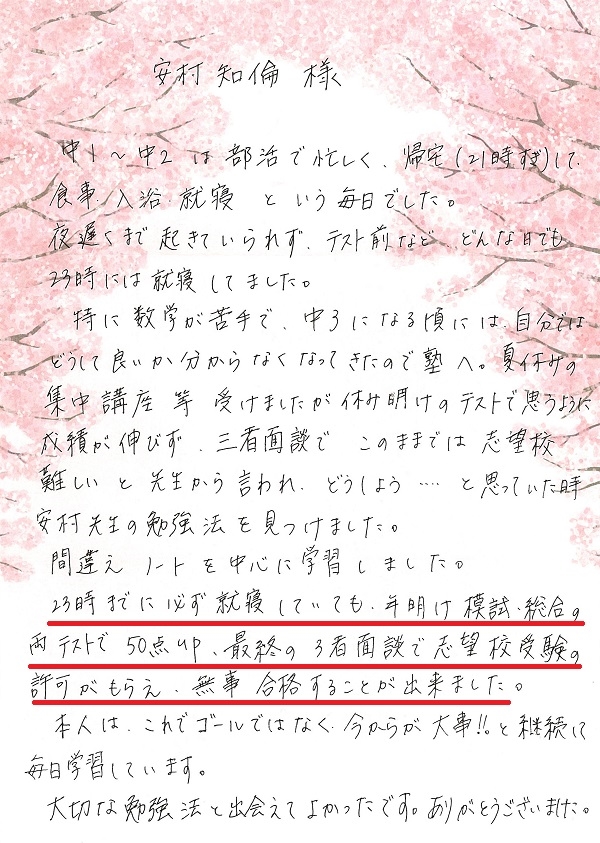 安村 知倫 様
中1〜中2 は 部活で忙しく、帰宅(21時すぎ)して、
食事、入浴、就寝 という毎日でした。
夜遅くまで起きていられず、テスト前など、どんな日でも
23時には就寝してました。
特に数学が苦手で、中3になる頃には、自分では
どうして良いか分からなくなってきたので塾へ。夏休みの
集中講座 等 受けましたが休み明けのテストで思うように
成績が伸びず、三者面談で このままでは 志望校
難しいと 先生から言われ、どうしよう…‥と思っていた時
安村先生の勉強法を見つけました。
間違えノートを中心に学習しました。
23時までに必ず就寝していても、年明け模試、総合の
両テストで 50点up、最終の 3者面談で志望校受験の
許可がもらえ、無事 合格することが出来ました。
本人は、これでゴールではなく、今からが大事!!と継続して
毎日学習しています。
大切な勉強法と出会えてよかったです。ありがとうございました。